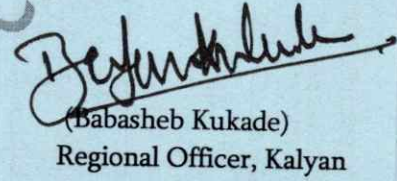 (Babasheb Kukade)
Regional Officer, Kalyan